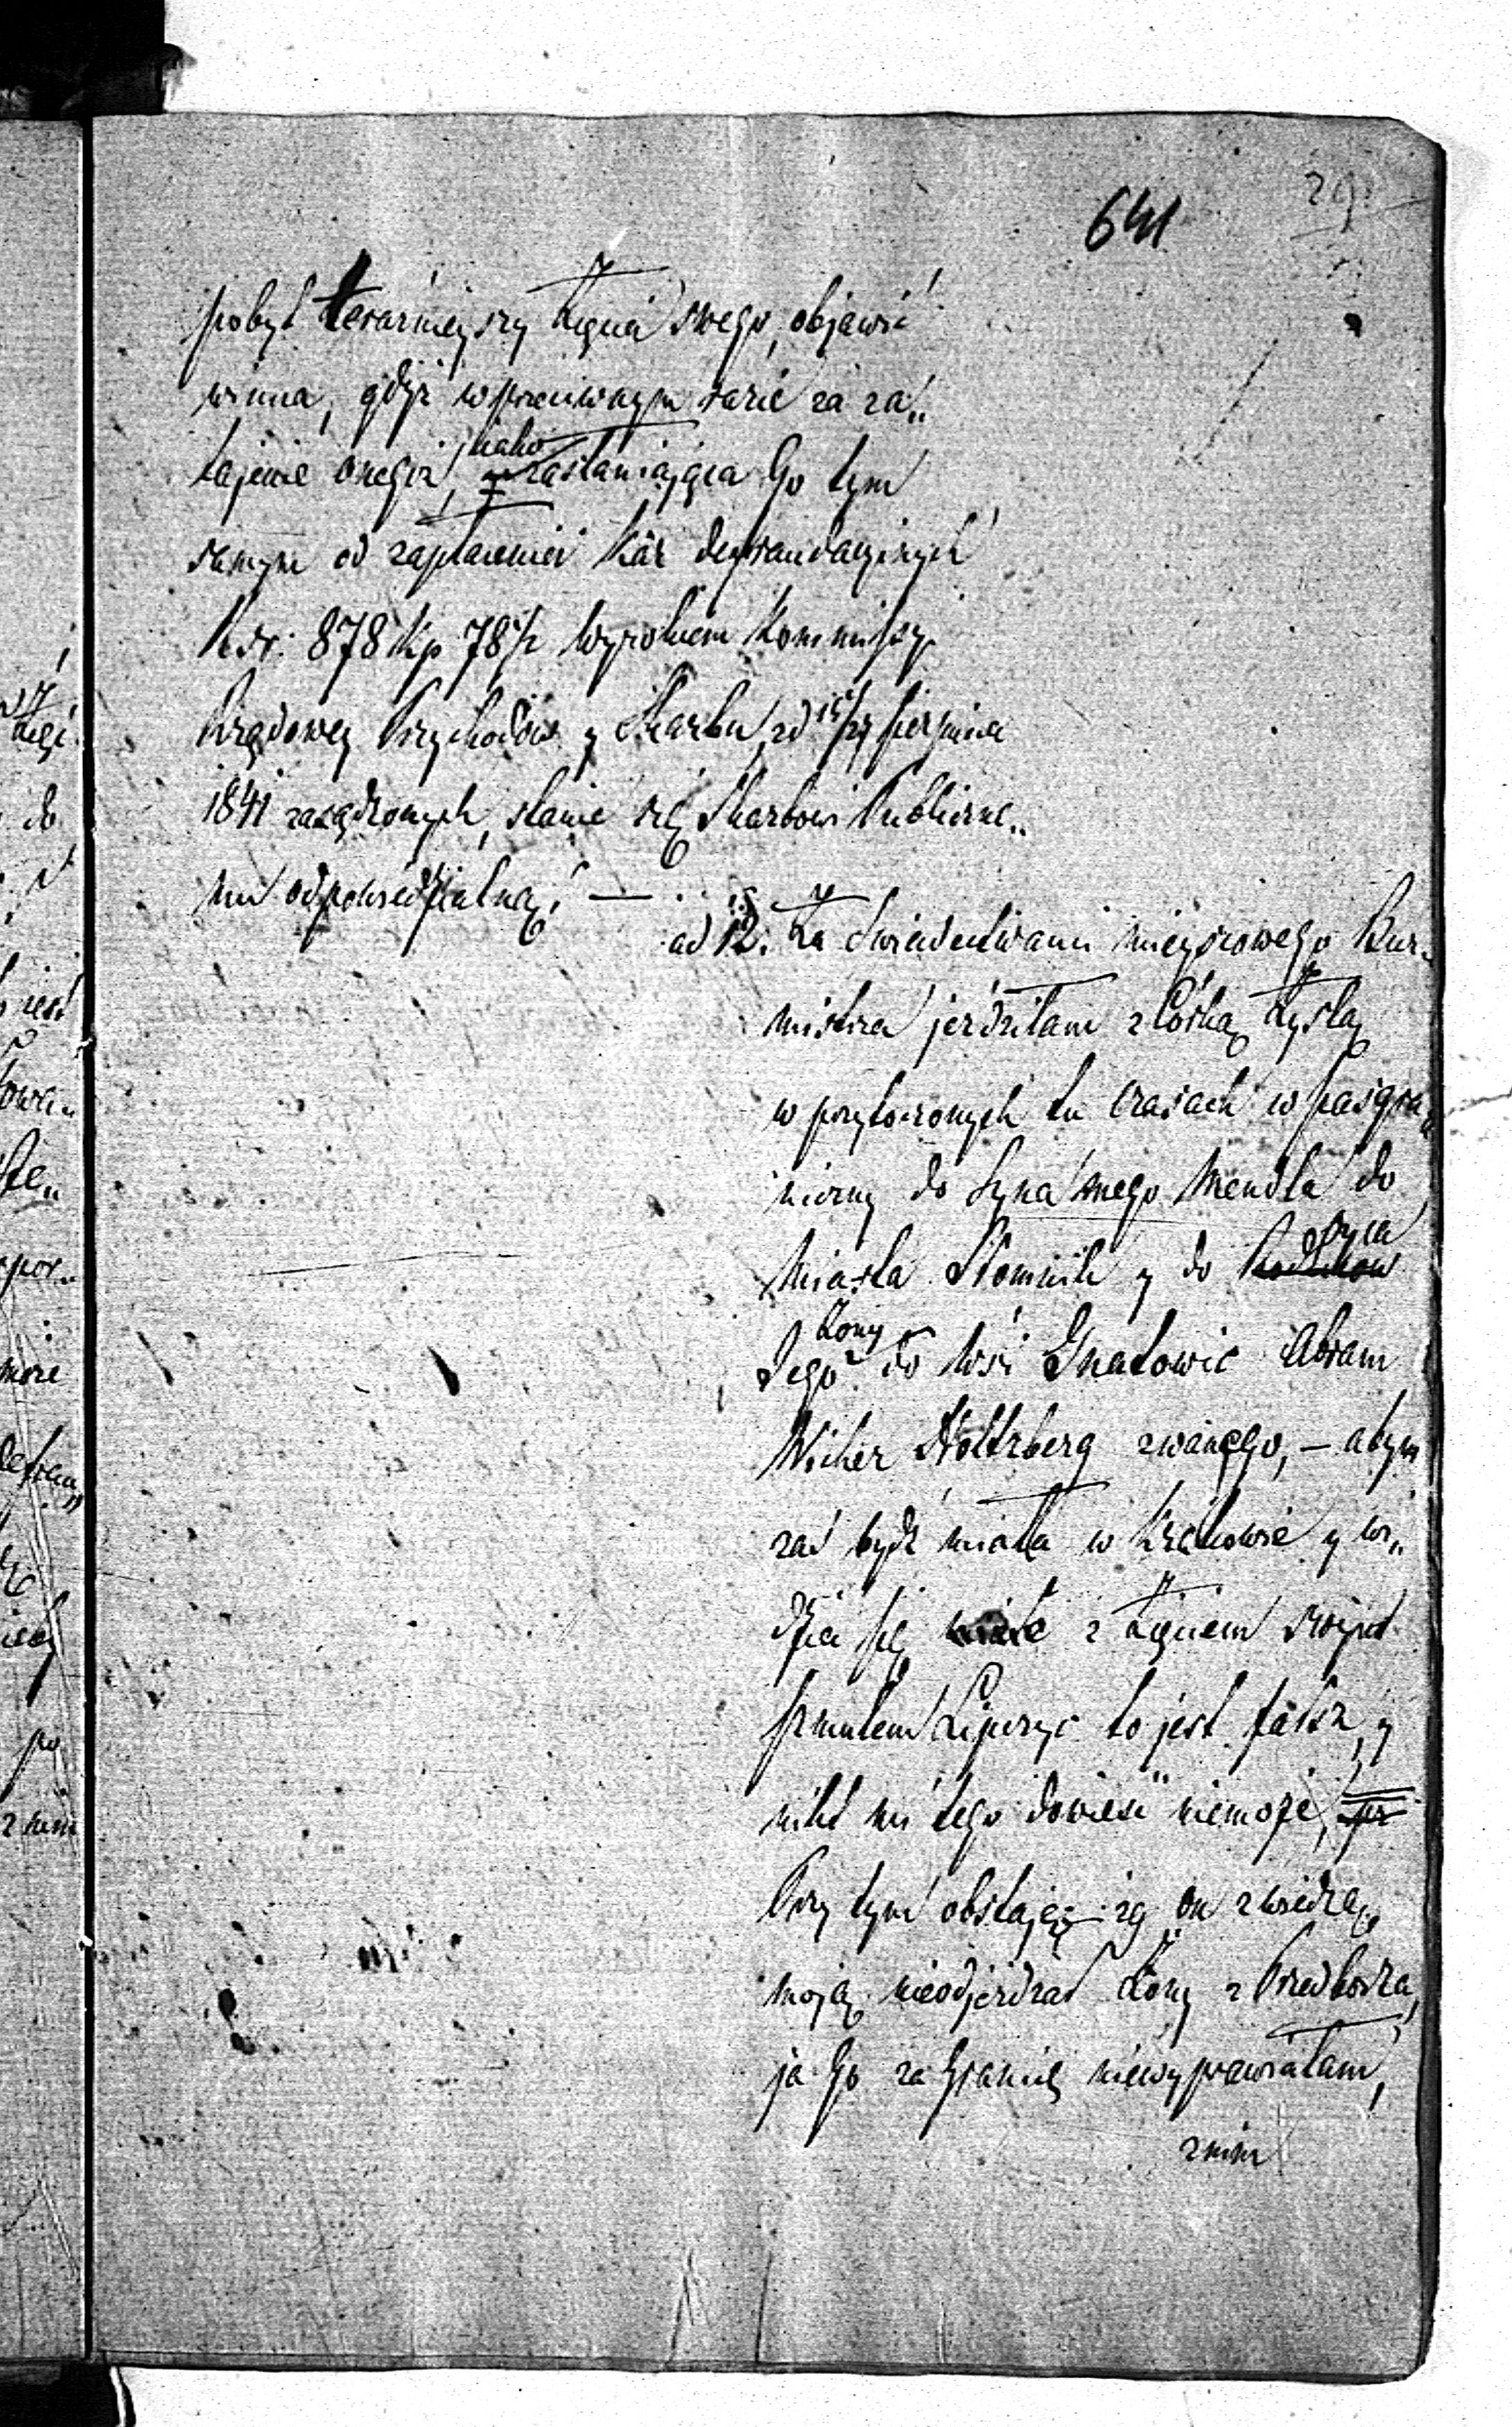 641
29
pobyt terazniejszy Zięcia swego, objawić
winna, gdyż w przeciwnym razie za za„
tajenie onegoż, jako zasłaniająca Go tym
samym od zapłacenia Kar defraudacyjnych
Rsr: 878 Kp 78½ wyrokiem Kommissyi
Rządowey Przychodów y Skarbu zd Sierpnia
1841 zasądzonych, stanie się Skarbowi Publiczne„
mu odpowiedzialną. —
ad 12. Za Swiadectwami mieyscowego Bur„
mistrza jeździłam z Córką Zysłą
w przytoczonych tu czasach w pasgra„
niczny do Syna mego Mendla do
Miasta Słomnik y do Oyca
Jego Żony do Wsi Gnatowic Abram
Wicher Holtzberg zwanego, — abym
zaś bydź miała w Krakowie y wi„
dzieć się z Zięciem swym
Szmulem Lipszyc to jest fałsz, y
nikt mi tego dowieść niemoże,
Przy tym obstaję żę on z wiedzą
moją nieodjeżdzał Żony z Przedborza,
ja Go za Granicę niewyprawiałam,
z nim